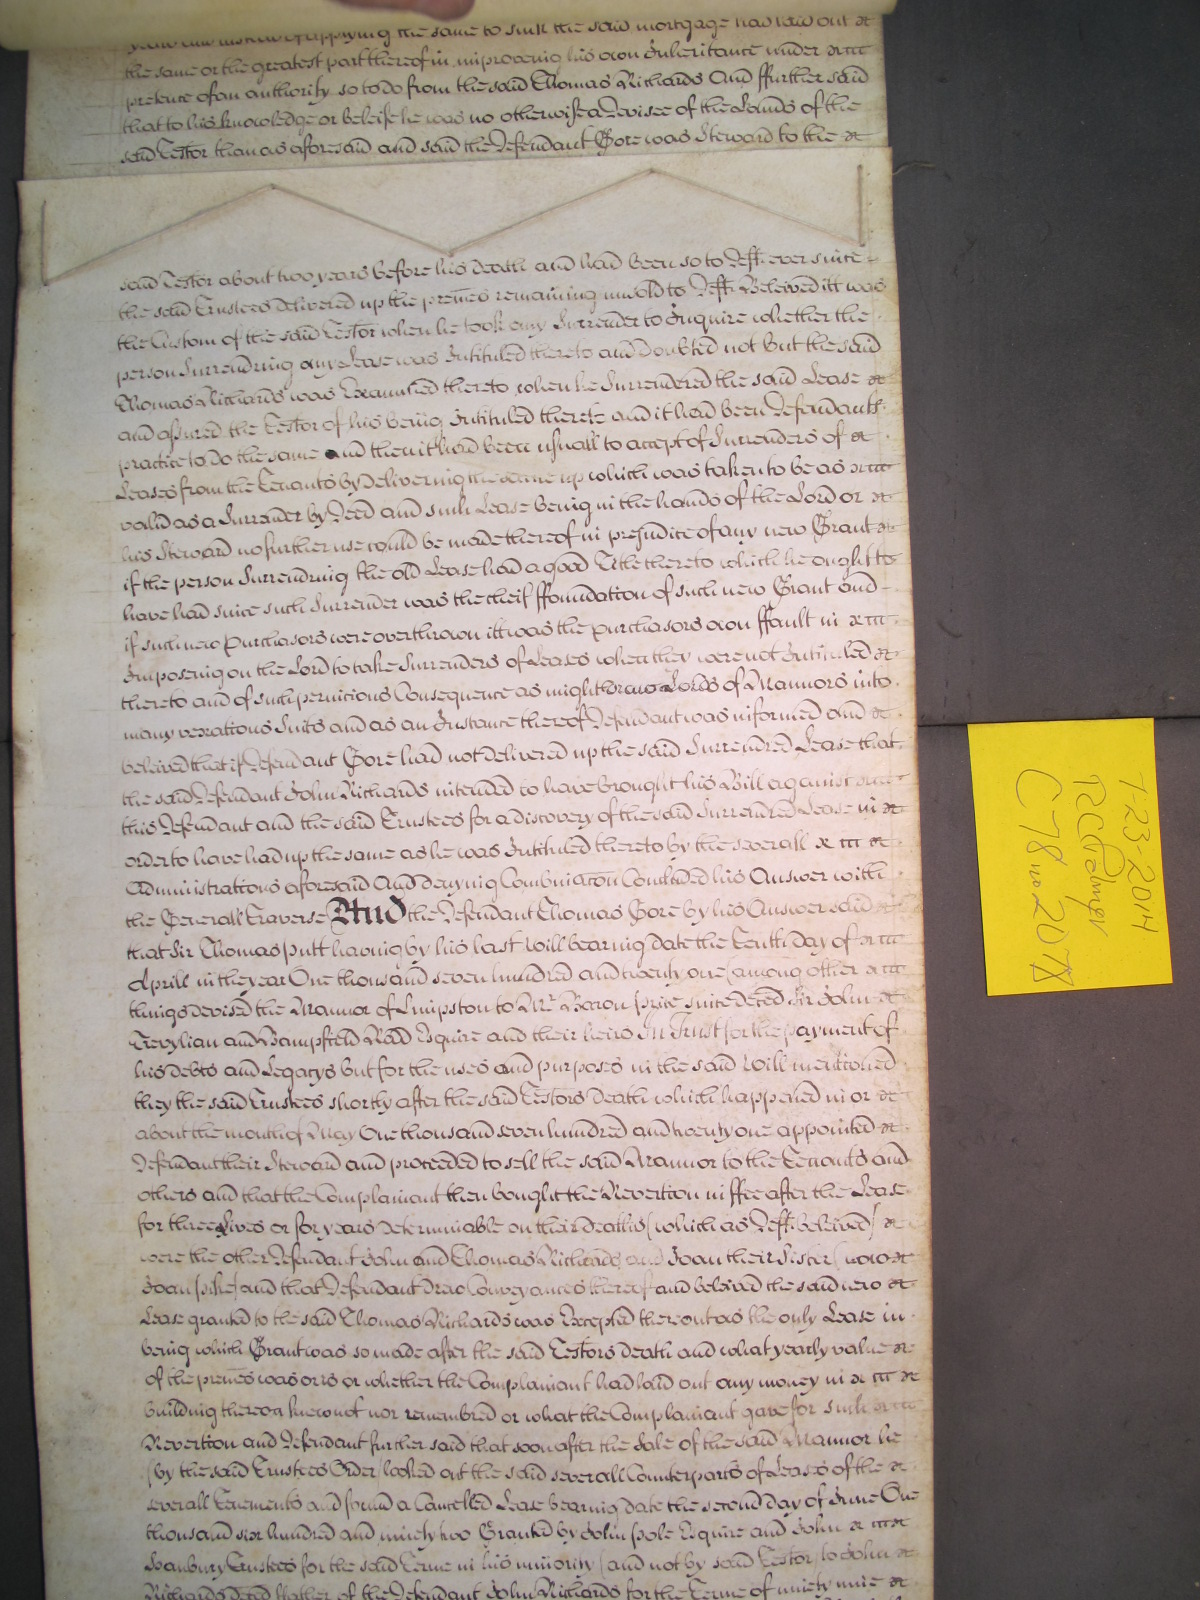 the same to sink the said mortgage had laid out &
the same or the greatest part thereof in improveing his own Inheritance under
pretence of an authority so to do from the said Thomas Richards And ffurther said
that to his knowledge or beleife he was no otherwise a Devisee of the Lands of the
said Testor than as aforesaid and said the Defendant Gore was Steward to the &
said Testor about two years before his death and had been so to Deft. ever since
the said Trustees delivered up the prem̄es remaining unsold to Deft. Beleived itt was
the Custom of the said Testor when he took any Surrender to Inquire whether the
person Surrendring any Lease was Intituled thereto and Doubted not But the said
Thomas Richards was Examined thereto when he Surrendered the said Lease &
and assured the Testor of his being Intituled thereto and it had been Defendants
practice to do the same and then it had been usuall to accept of Surrenders of &
Leases from the Tenants by delivering the same up which was taken to be as
valid as a Surrender by Deed and such Lease being in the hands of the Lord or &
his Steward no further use could be made thereof in prejudice of any new Grant &
if the person Surrendring the old Lease had a good Title thereto which he ought to
have had since such Surrender was the cheif ffoundation of such new Grant and
if such new purchasors were overthrown itt was the purchasors own ffault in
Imposeing on the Lord to take Surrenders of Leases when they were not Intituled &
thereto and of such pernicious Consequence as might draw Lords of Mannors into
many vexatious Suits and as an Instance thereof Defendant was informed and &
beleived that if Defendant Gore had not delivered up the said Surrendred Lease that
the said Defendant John Richards intended to have brought his Bill against
this Defendant and the said Trustees for a discovery of the said Surrendred Lease in &
order to have had up the same as he was Intituled thereto by the severall &
Administrations aforesaid And denying Combinac̄on Concluded his Answer with
the Generall Traverse And the Defendant Thomas Gore by his Answer said
that Sir Thomas Putt having by his last Will bearing date the Tenth day of
Aprill in the year One thousand seven hundred and twenty one (among other
things devised the Mannor of Limpston to Mr. Baron Price since deced Sir John &
Trevylian and Bampfeild Rodd Esquire and their heirs In Trust for the payment of
his debts and Legacys but for the uses and purposes in the said Will mentioned
they the said Trustees shortly after the said Testors death which happened in or &
about the month of May One thousand seven hundred and twenty one appointed &
Defendant their Steward and proceeded to sell the said Mannor to the Tenants and
others and that the Complainant then bought the Revertion in ffee after the Lease
for three Lives or for years determinable on their deaths (which as Deft. beleived) &
were the other Defendant John and Thomas Richards and Joan their Sister (now &
Joan Pike) and that Defendant drew Conveyances thereof and beleived the said new &
Lease granted to the said Thomas Richards was Excepted thereout as the only Lease in
being which Grant was so made after the said Testors death and what yearly value &
of the prem̄es was or is or whether the Complainant had laid out any money in &
building thereon knew not nor remembred or what the Complainant gave for such
Revertion and Defendant further said that soon after the Sale of the said Mannor he
(by the said Trustees Order) looked out the said severall Counterparts of Leases of the &
severall Tenements and found a Cancelled Lease bearing date the second day of June One
thousand six hundred and ninety two Granted by John Pole Esquire and John &
Hanbury Trustees for the said Terme in his minority (and not by said Testor) to John &
Richards deced ffather of the Defendant John Richards for the Terme of ninety nine &
7-23-2014
RCPalmer
C78no2078